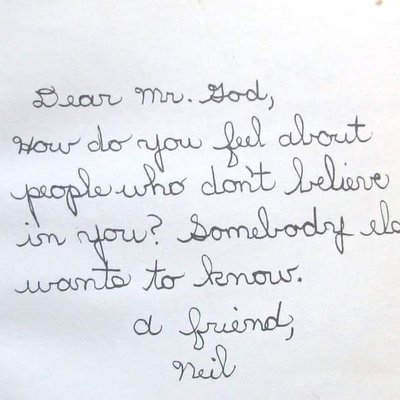 Dear Mr. God,
How do you feel about
people who don't believe
in you? Somebody els
wants to know.
a friend,
Neil